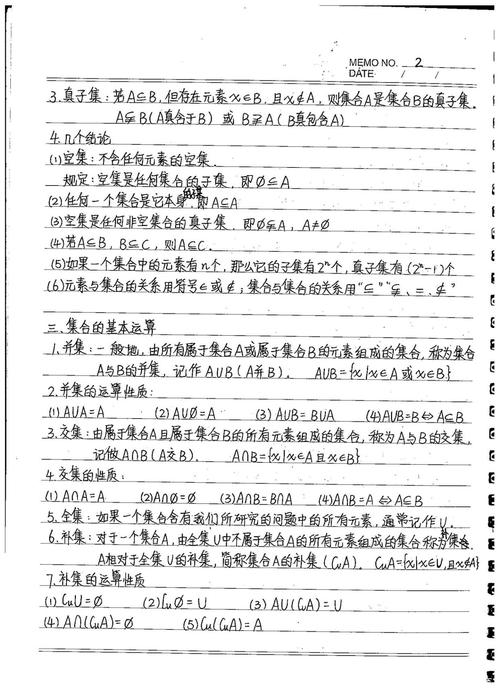 MEMO NO. 2
DATE / /
3.真子集:若A⊆B,但存在元素x∈B,且x∉A,则集合A是集合B的真子集。
A⫋B(A真含于B) 或 B⫌A(B真包含A)
4.几个结论
(1)空集:不含任何元素的空集.
规定:空集是任何集合的子集,即∅⊆A
(2)任何一个集合是它本身的子集,即A⊆A
(3)空集是任何非空集合的真子集.即∅⫋A,A≠∅
(4)若A⊆B,B⊆C,则A⊆C.
(5)如果一个集合中的元素有n个,那么它的子集有2ⁿ个,真子集有(2ⁿ-1)个
(6)元素与集合的关系用符号∈或∉;集合与集合的关系用"⊆""⫋、=、⊄"
三.集合的基本运算
1.并集:一般地,由所有属于集合A或属于集合B的元素组成的集合,称为集合
A与B的并集,记作A∪B(A并B). A∪B={x|x∈A或x∈B}
2.并集的运算性质:
(1)A∪A=A (2)A∪∅=A (3)A∪B=B∪A (4)A∪B=B⇔A⊆B
3.交集:由属于集合A且属于集合B的所有元素组成的集合,称为A与B的交集,
记做A∩B(A交B). A∩B={x|x∈A且x∈B}
4.交集的性质:
(1)A∩A=A (2)A∩∅=∅ (3)A∩B=B∩A (4)A∩B=A⇔A⊆B
5.全集:如果一个集合含有我们所研究的问题中的所有元素,通常记作U.
6.补集:对于一个集合A,由全集U中不属于集合A的所有元素组成的集合称为集合
A相对于全集U的补集,简称集合A的补集(∁ᵤA). ∁ᵤA={x|x∈U,且x∉A}
7.补集的运算性质
(1)∁ᵤU=∅ (2)∁ᵤ∅=U (3)A∪(∁ᵤA)=U
(4)A∩(∁ᵤA)=∅ (5)∁ᵤ(∁ᵤA)=A